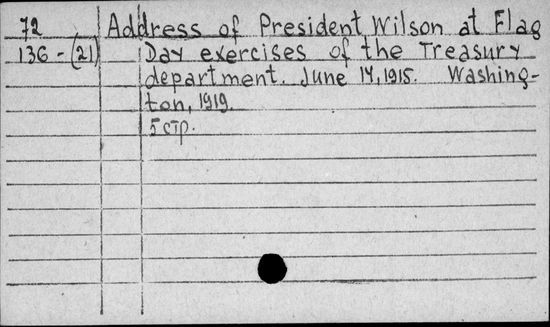 72 Address of President Wilson at Flag
136-(21) Day exercises of the Treasury
department. June 14, 1915. Washing-
ton, 1919.
5 стр.